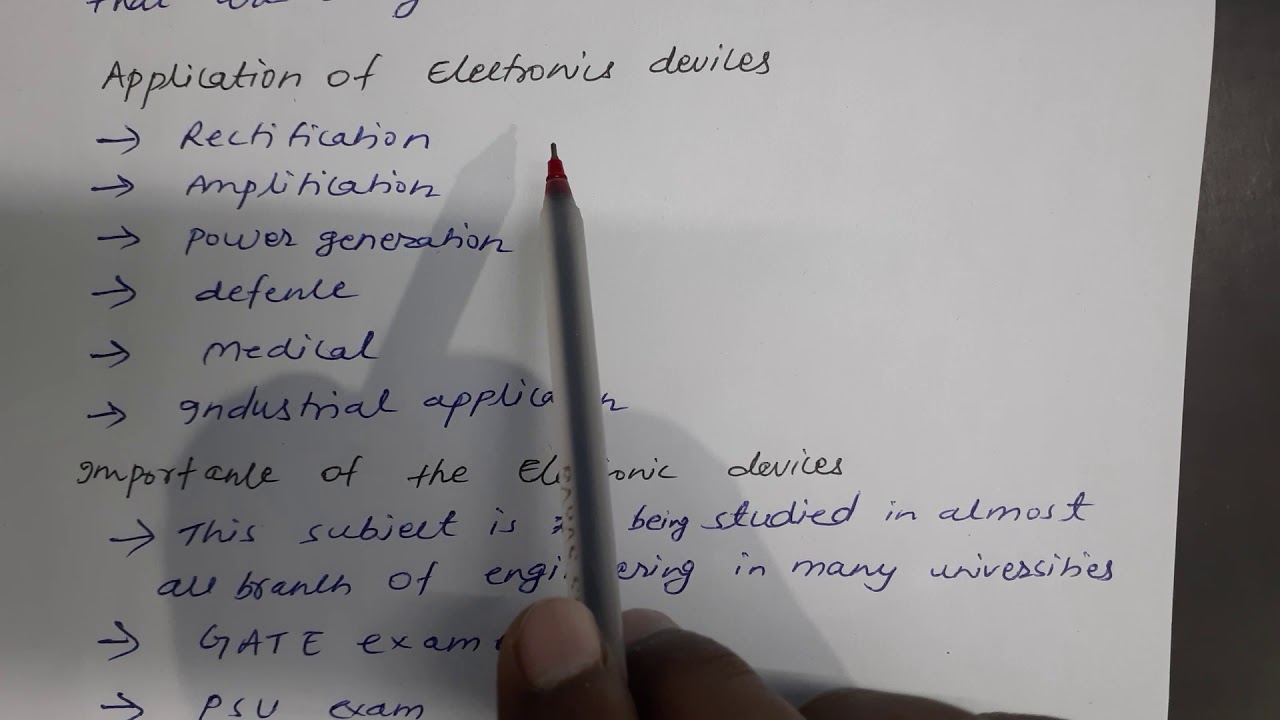 Application of Electronics devices
→ Rectification
→ Amplification
→ power generation
→ defence
→ Medical
→ Industrial
Importance of the devices
→ This subject is being studied in almost
all branch of in many universities
→ GATE exam
→ PSU exam